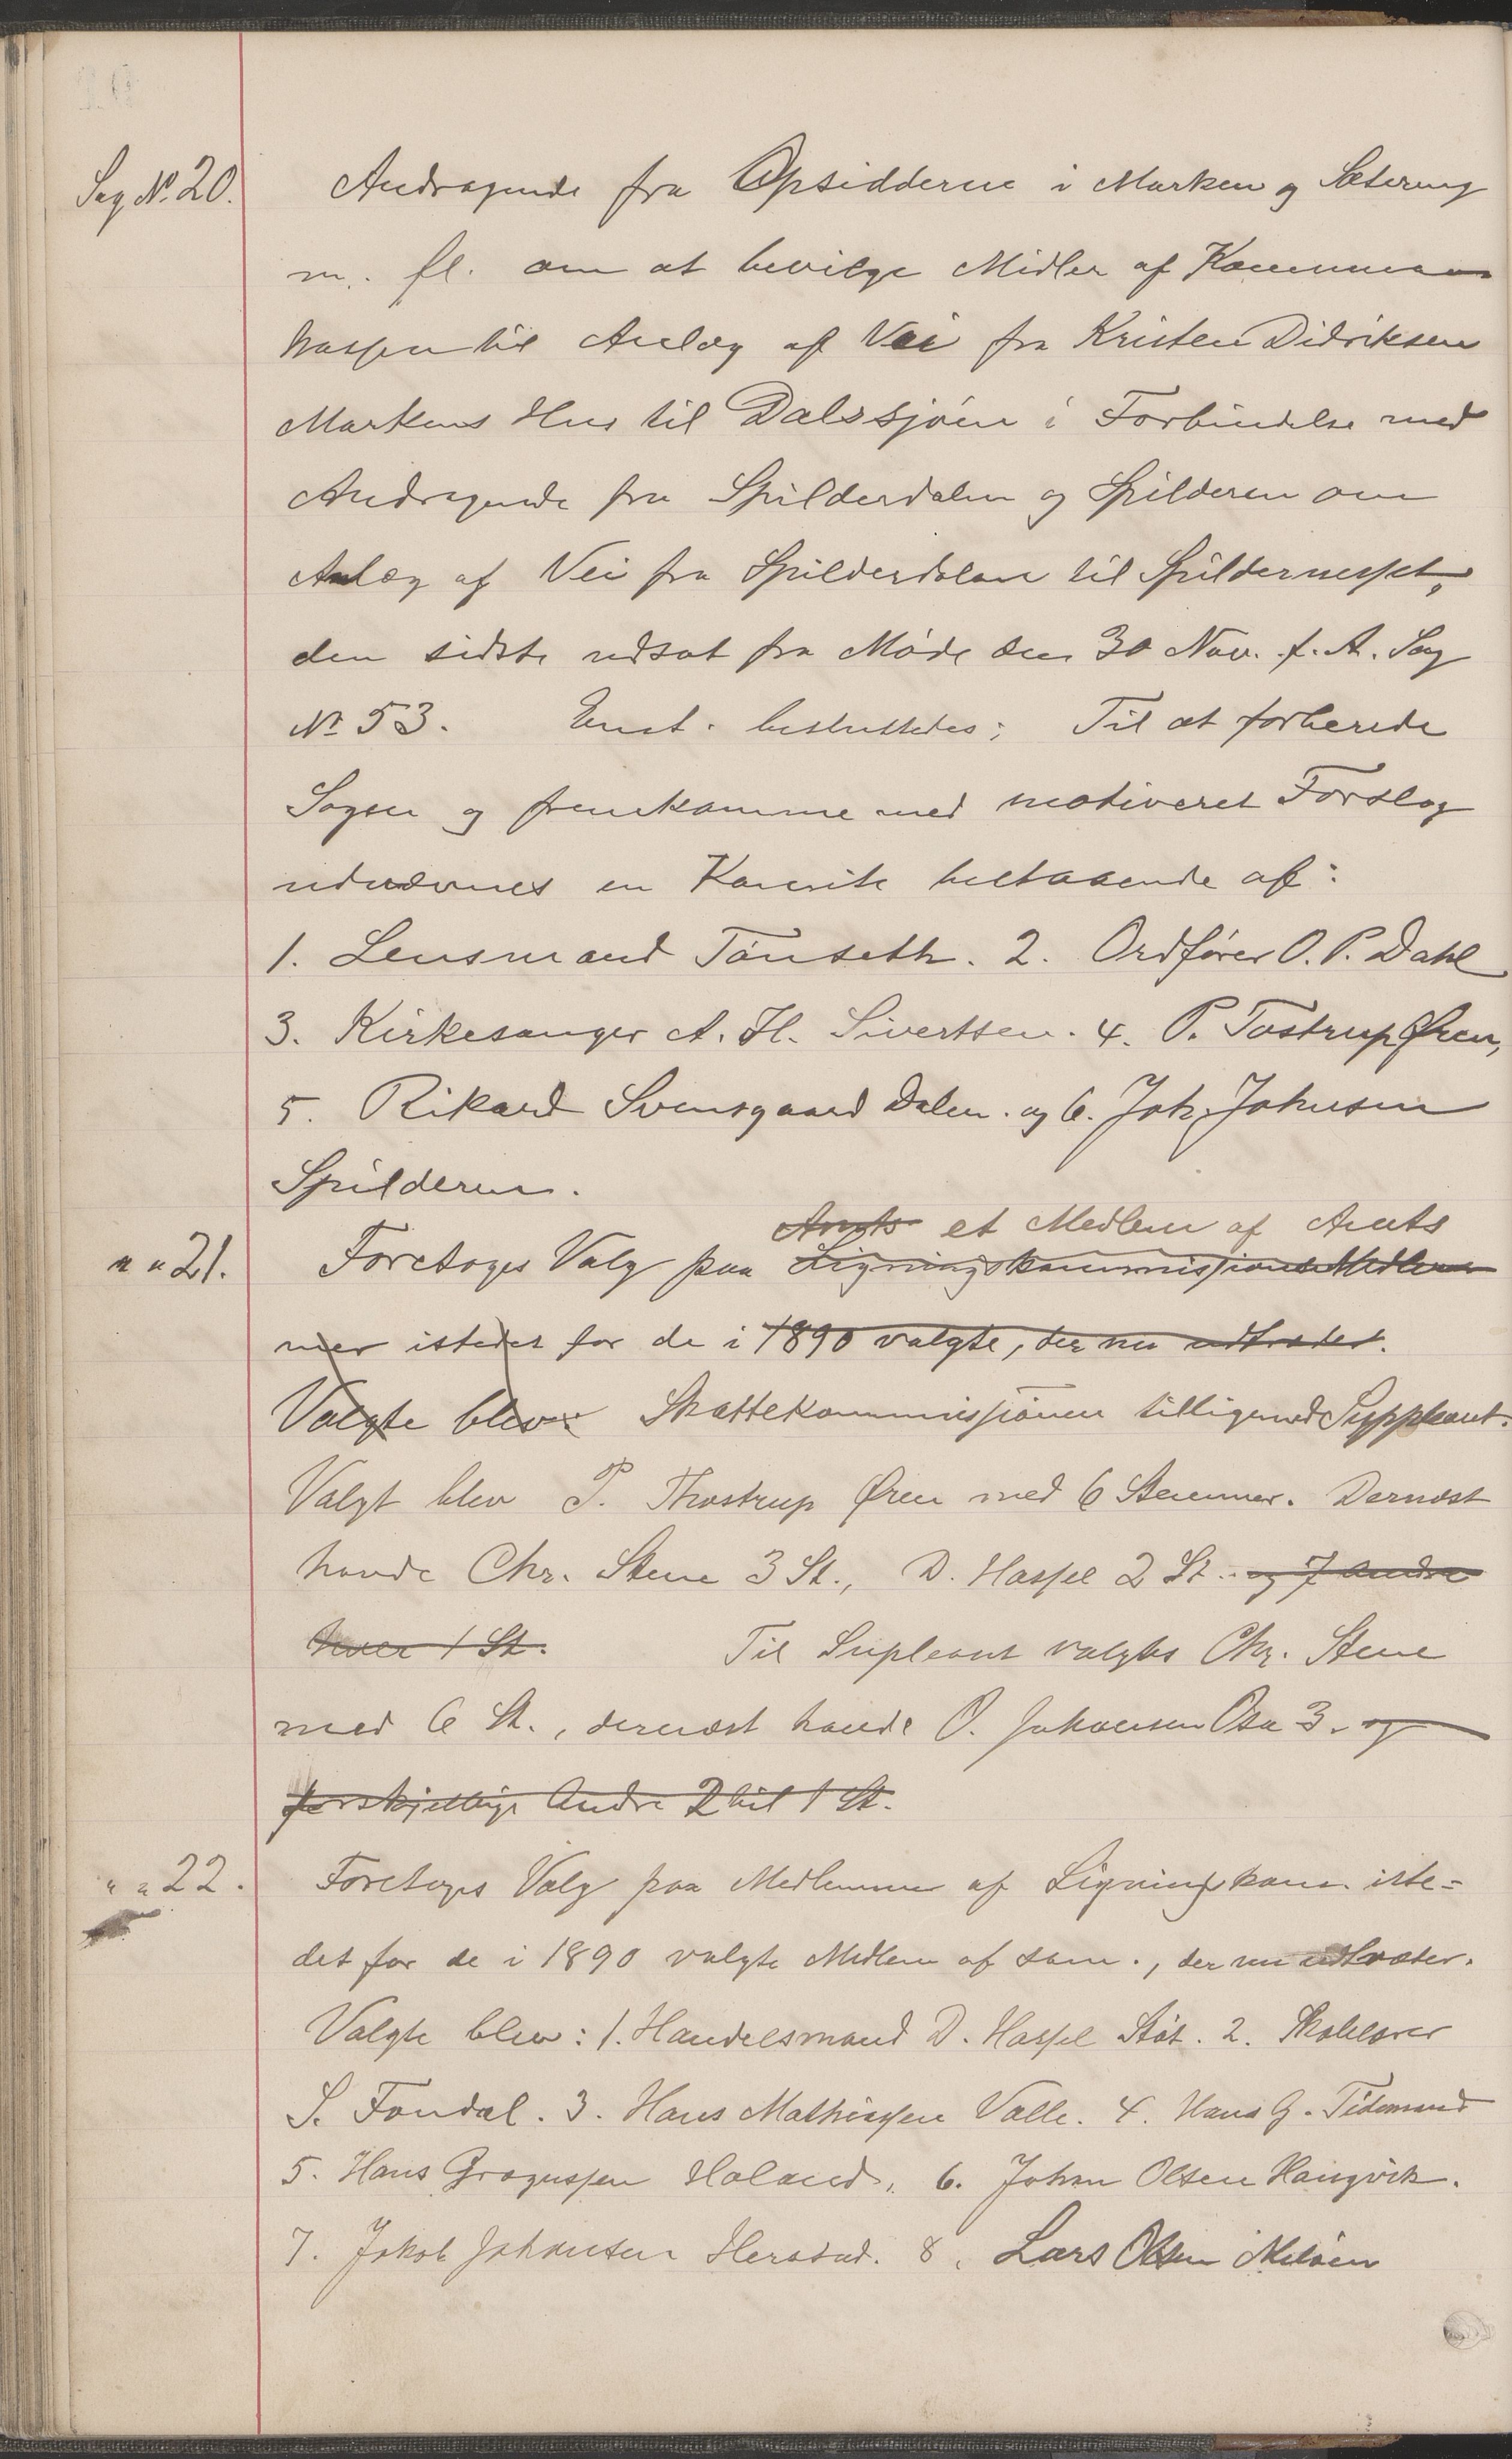 Sag No. 20. Andragende fra Opsidderne i Marken og Sæterung
m. fl. om at bevilge Midler af Kommune
kassen til Anlæg af Vei fra Kristen Didriksen
Markens Hus til Dalssjøen i Forbindelse med
Andragende fra Spilderdalen og Spilderen om
Anlæg af Vei fra Spilderdalen til Spildernesset,
den sidste udsat fra Møde den 30 Nov. f. A. Sag
No 53. Enst. besluttedes: Til at forberede
Sagen og fremkomme med motiveret Forslag
udnævnes en Komite bestaaende af:
1. Lensmand Tønseth. 2. Ordfører O. P. Dahl
3. Kirkesanger A. H. Sivertsen. 4. P. Tostrup Øren,
5. Rikard Svensgaard Dalen. og 6. Joh. Johnsen
Spilderen.
Amts et Medlem af Amts
" " 21. Foretoges Valg paa Ligningskommissions Medlem
mer istedet for de i 1890 valgte, der nu udtræder.
Valgte blev: Skattekommissionen tilligemed Suppleant.
Valgt blev P. Thostrup Øren med 6 Stemmer. Dernæst
havde Chr. Stene 3 St., D. Hassel 2 St. og 7 andre
hver 1 St. Til Supleant valgtes Chr. Stene
med 6 St., dernæst havde O. Johansen Osa 3. og
forskjellige Andre 2 til 1 St.
" " 22. Foretoges Valg paa Medlemmer af Ligningskom. iste-
det for de i 1890 valgte Medlem af sam., der nu udtræder.
Valgte blev: 1. Handelsmand D. Hassel Støt. 2. Skolelærer
S. Fondal. 3. Hans Mathiassen Valle. 4. Hans G. Tidemand
5. Hans Gregussen Holand, 6. Johan Olsen Haugvik.
7. Jakob Johansen Herstad. 8. Lars Olsen Meløen